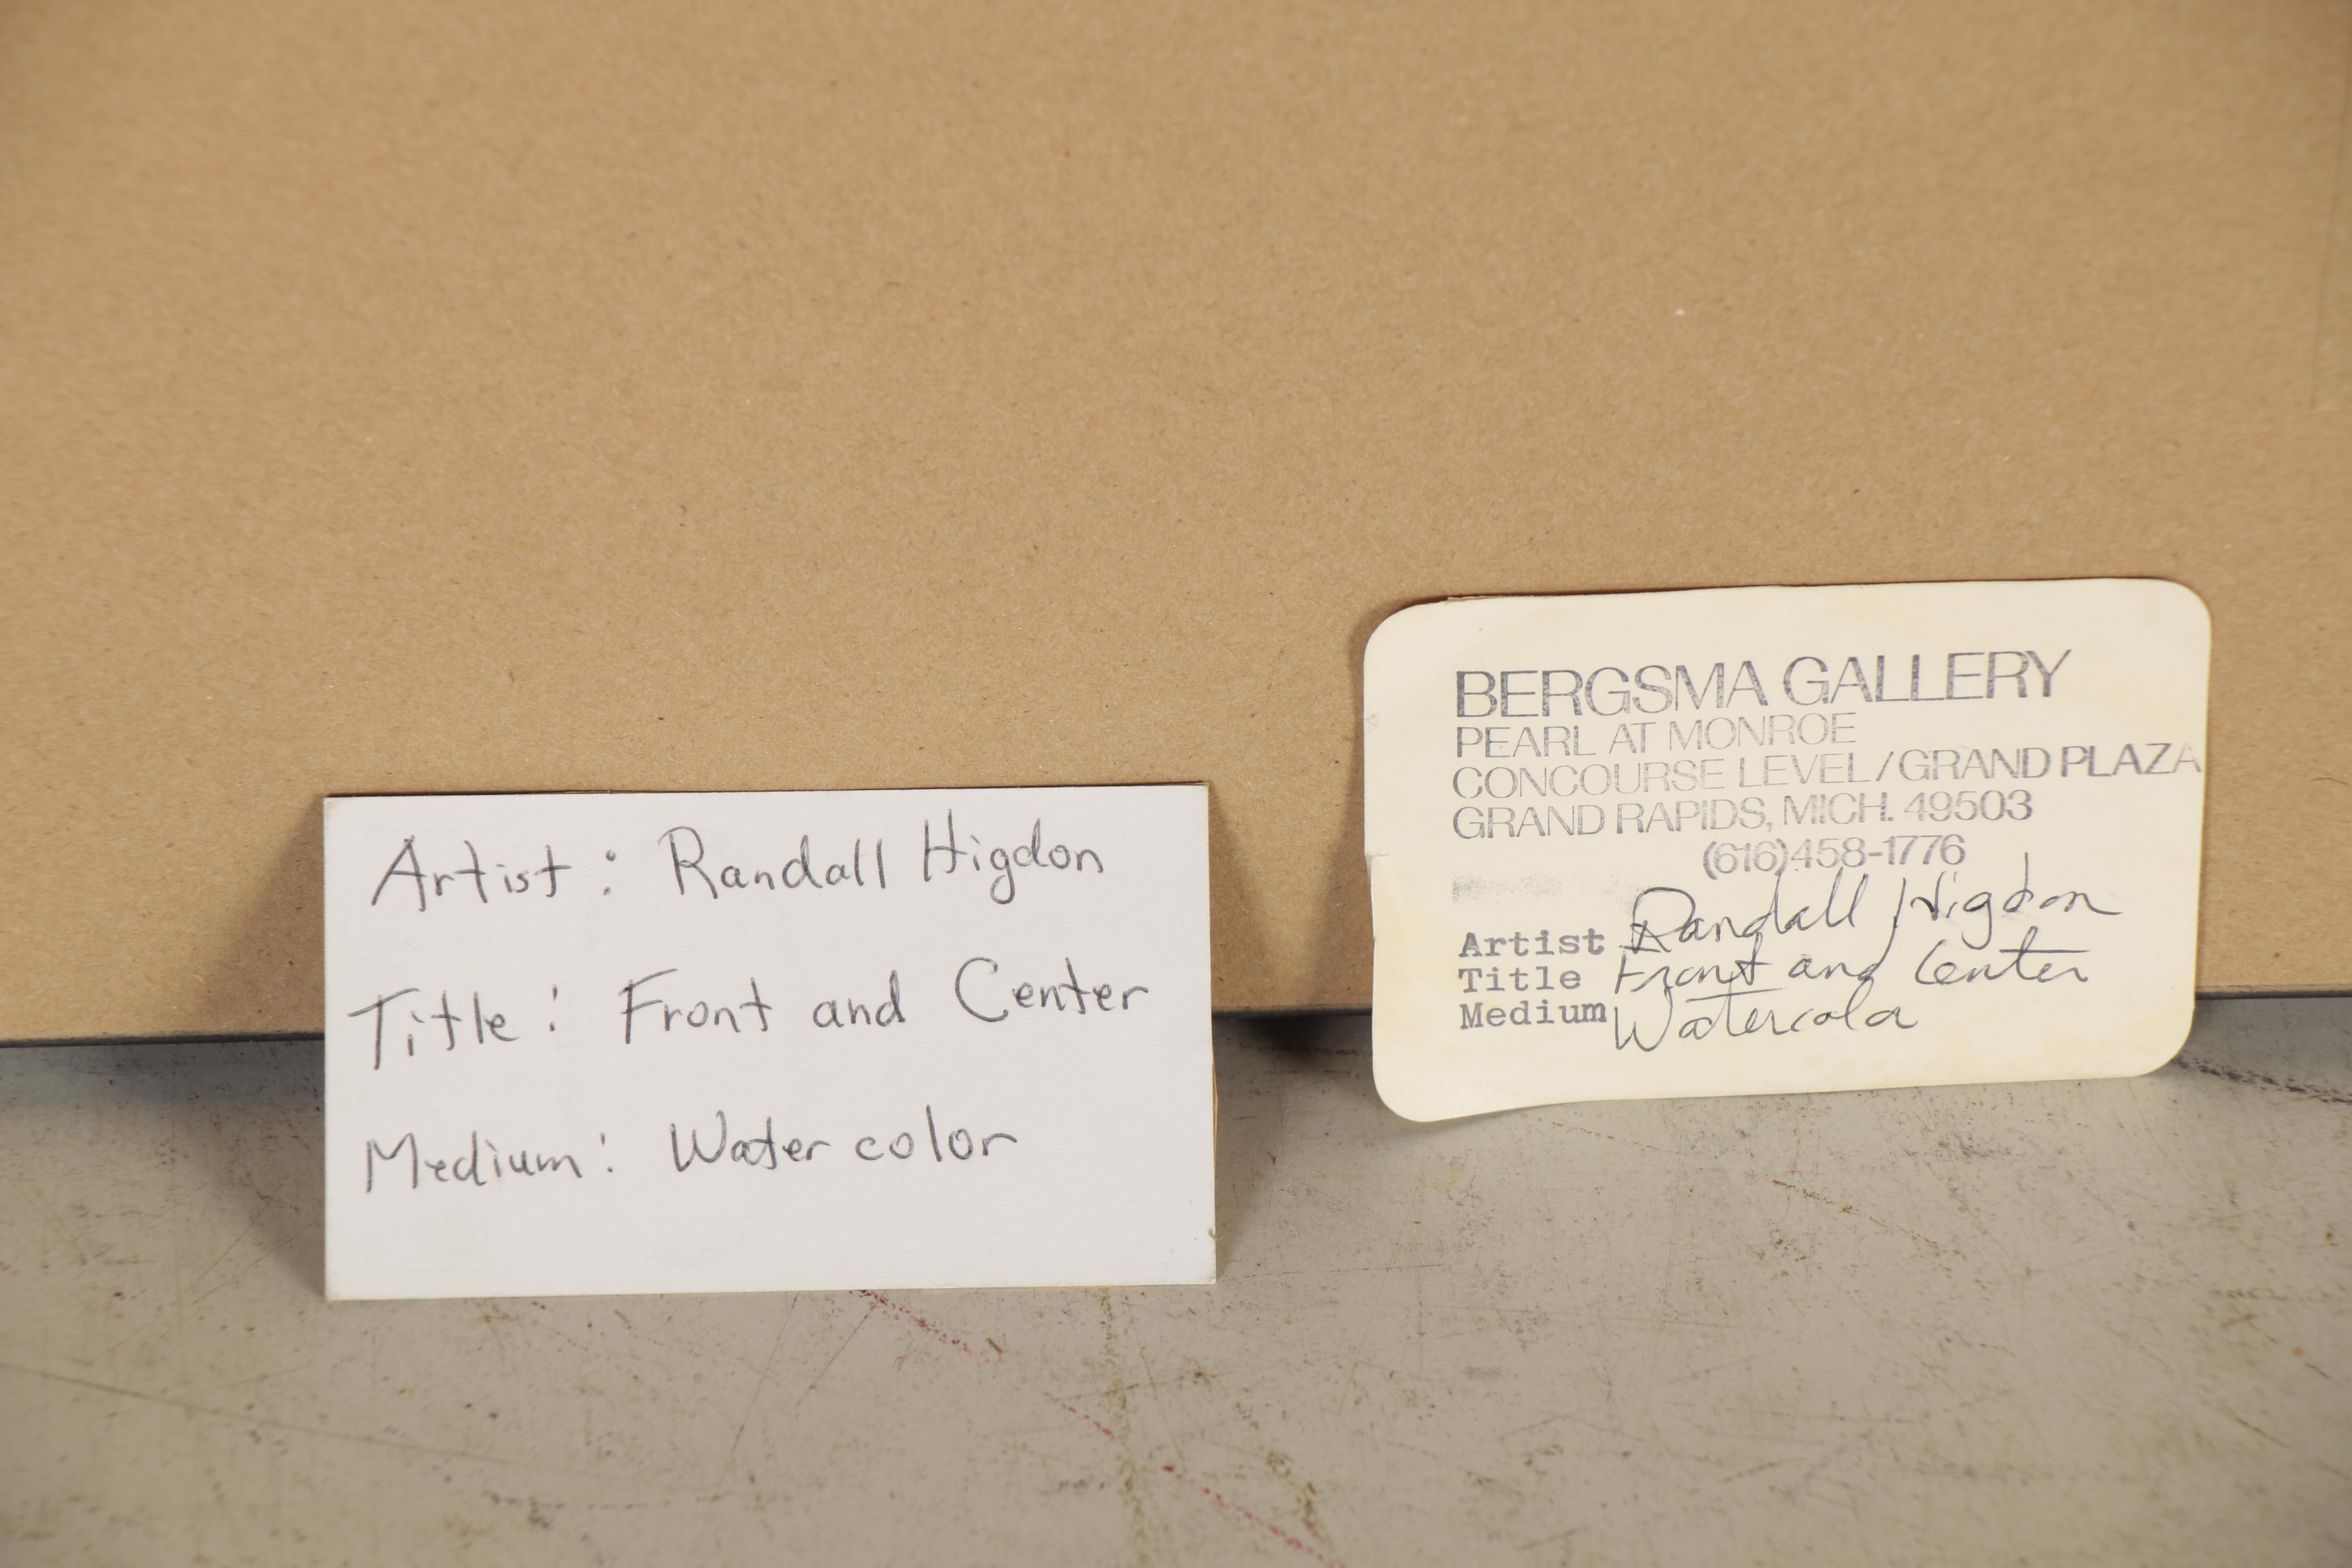 Artist: Randall Higdon
Title: Front and Center
Medium: Water color
BERGSMA GALLERY
PEARL AT MONROE
CONCOURSE LEVEL/GRAND PLAZA
GRAND RAPIDS, MICH. 49503
(616)458-1776
Artist Randall Higdon
Title Front and Center
Medium Watercolor